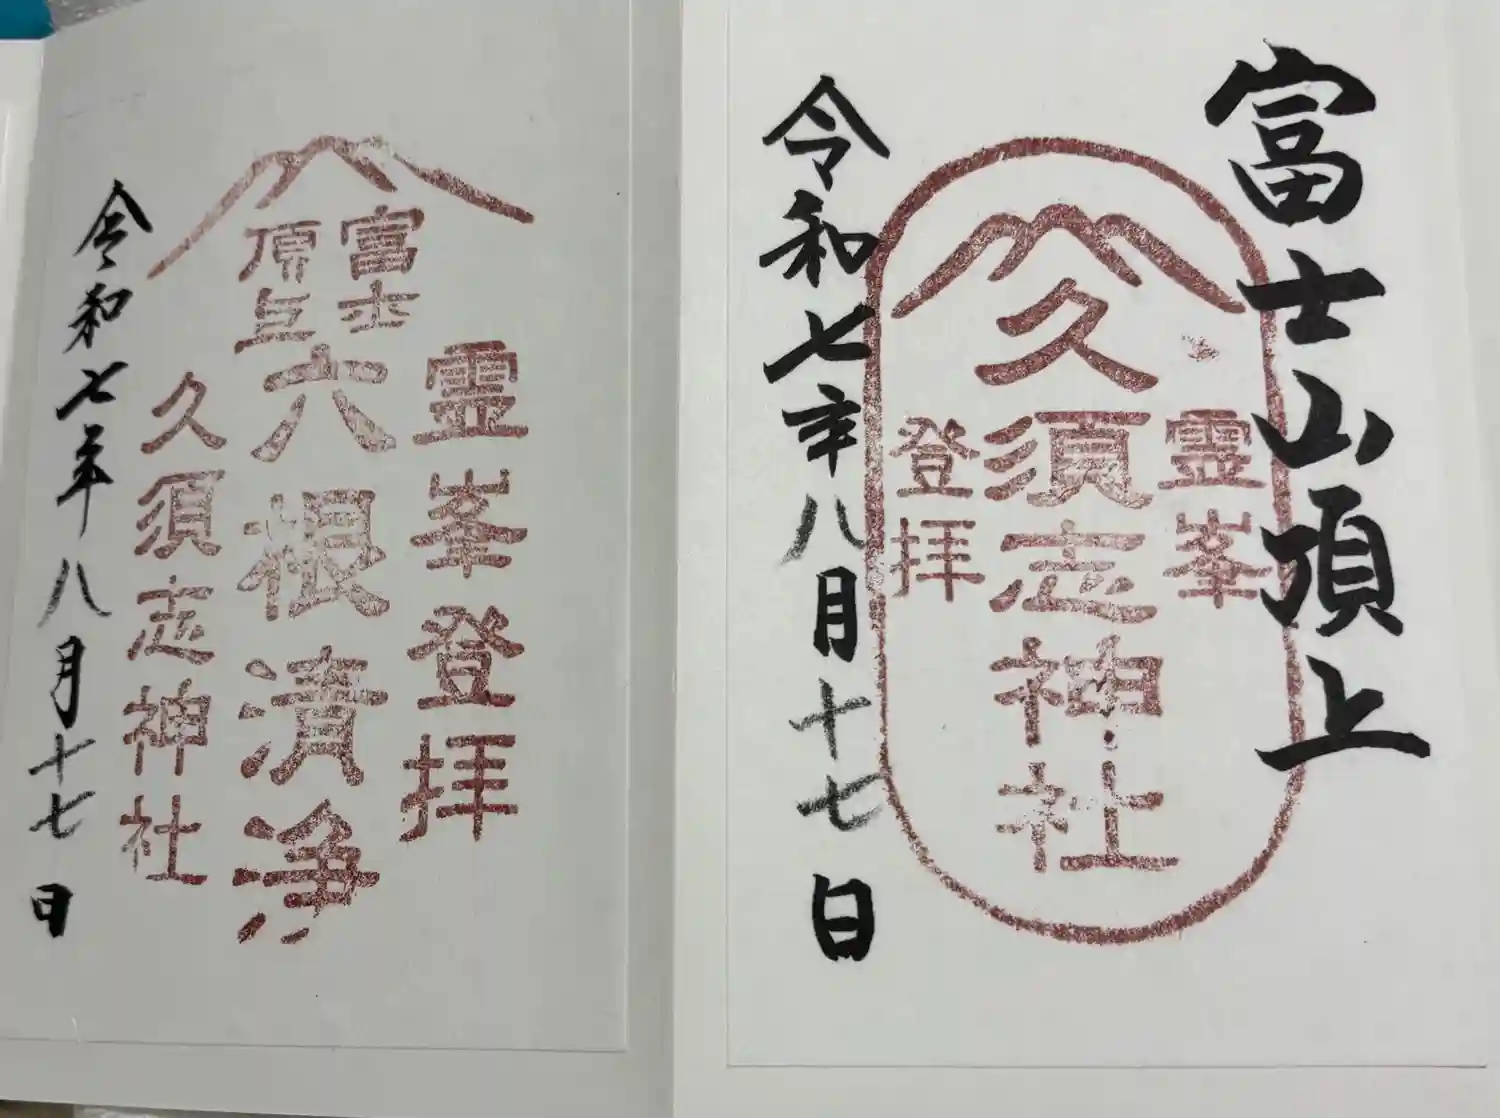 富士山頂上
霊峯
久須志神社
登拝
令和七年八月十七日
富士
頂上
霊峯登拝
六根清浄
久須志神社
令和七年八月十七日